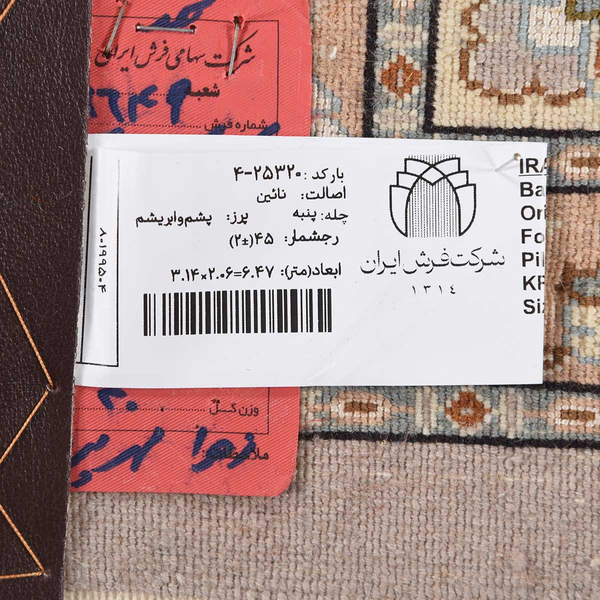 شرکت سهامی فرش ایران
شعبه
شماره فرش
بار کد : ۴-۲۵۳۲۰
اصالت: نائین
چله: پنبه پرز: پشم‌وابریشم
رجشمار: ۴۵(±۲)
ابعاد(متر): ۳.۱۴×۲.۰۶=۶.۴۷
شرکت فرش ایران
۱۳۱۴
۸۰۱۹۹۵۰۴
IRA
Ba
Ori
Fo
Pil
KP
Siz
وزن کل